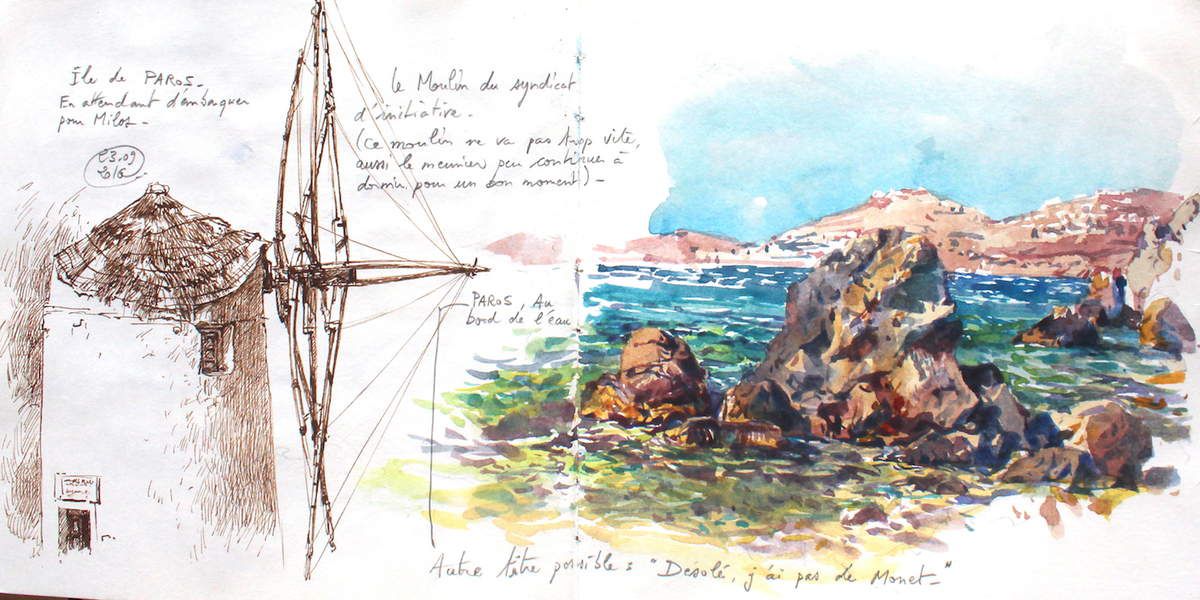 Île de PAROS_
En attendant d'embarquer
pour Milos_
23.09
2016
Le Moulin du syndicat
d'initiative.
(Ce moulin ne va pas trop vite,
aussi le meunier peu continuer à
dormir pour un bon moment)_
PAROS, Au
bord de l'eau
Autre titre possible : "Désolé, j'ai pas de Monet_"